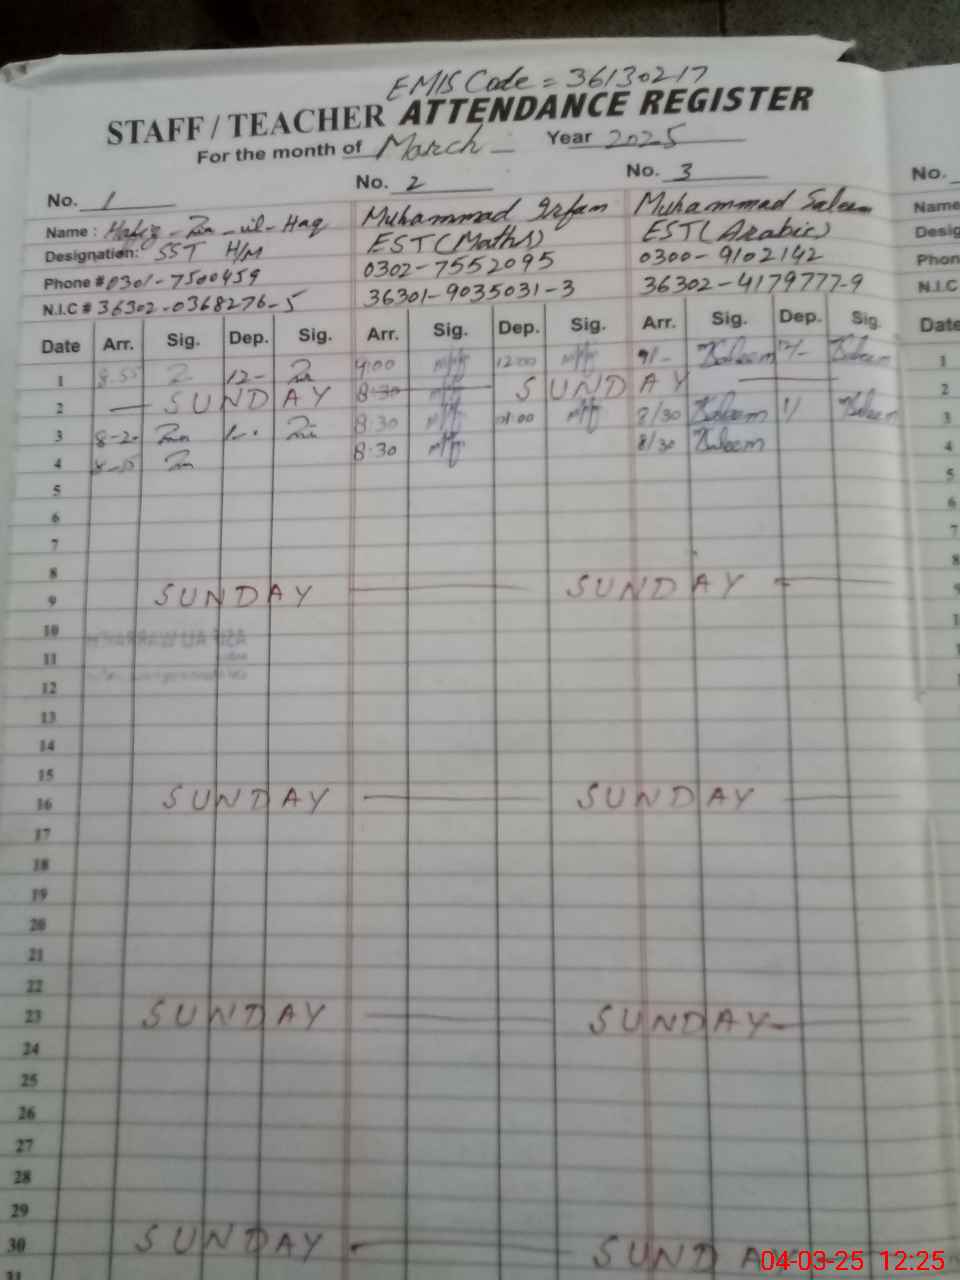 EMIS Code = 36130217
STAFF / TEACHER ATTENDANCE REGISTER
For the month of March - Year 2025
No. 1 No. 2 No. 3 No.
Name: Hafiz - Zia - ul - Haq Muhammad Irfan Muhammad Saleem Name
Designation: SST H/M EST (Maths) EST (Arabic) Desig
Phone # 0301-7500459 0302-7552095 0300-9102142 Phon
N.I.C # 36302-0368276-5 36301-9035031-3 36302-4179777-9 N.I.C
Date Arr. Sig. Dep. Sig. Arr. Sig. Dep. Sig. Arr. Sig. Dep. Sig. Date
1 8-55 12- 9:00 12:00 9/- Saleem 12/- Saleem 1
2 — SUNDAY 8-30 SUNDAY — 2
3 8-20 8:30 01:00 8/30 Saleem 1/ Saleem 3
4 8:30 8/30 Saleem 4
5 5
6 6
7 7
8 8
9 SUNDAY — SUNDAY — 9
10
11
12
13
14
15
16 SUNDAY — SUNDAY —
17
18
19
20
21
22
23 SUNDAY — SUNDAY —
24
25
26
27
28
29
30 SUNDAY - SUNDAY
31
04-03-25 12:25